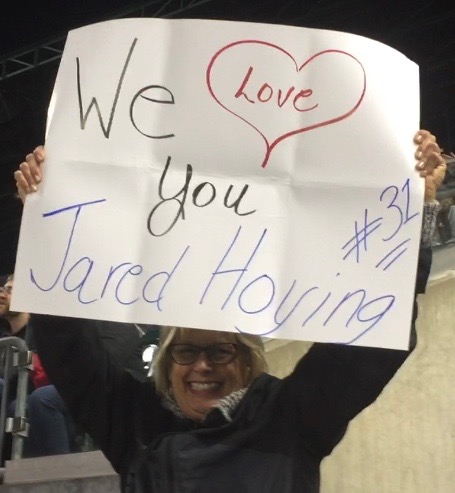 We Love
You
#31
Jared Hoying